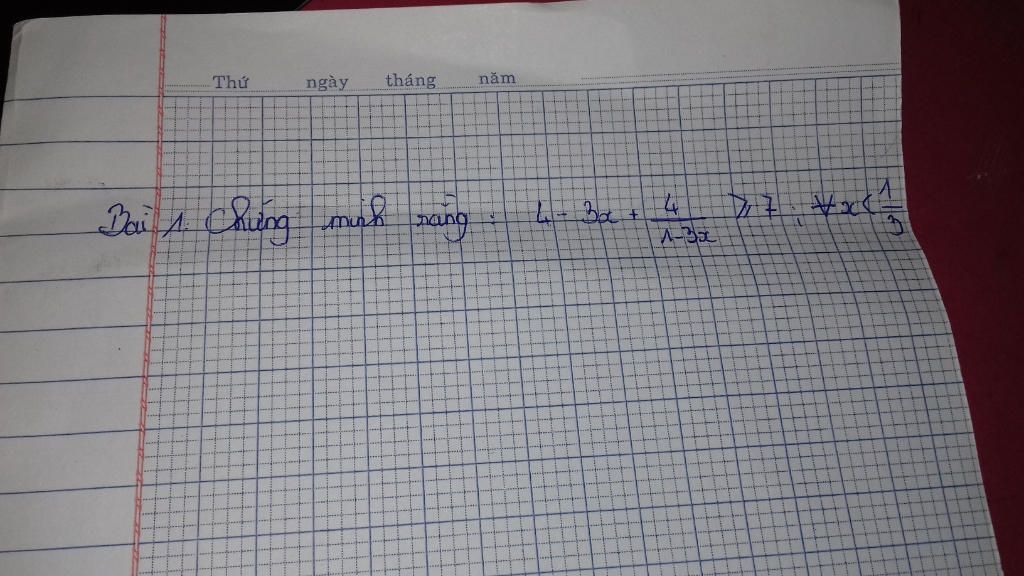 Thứ ngày tháng năm
Bài 1. Chứng minh rằng : 4 - 3x + 4/(1-3x) ⩾ 7 ; ∀x < 1/3